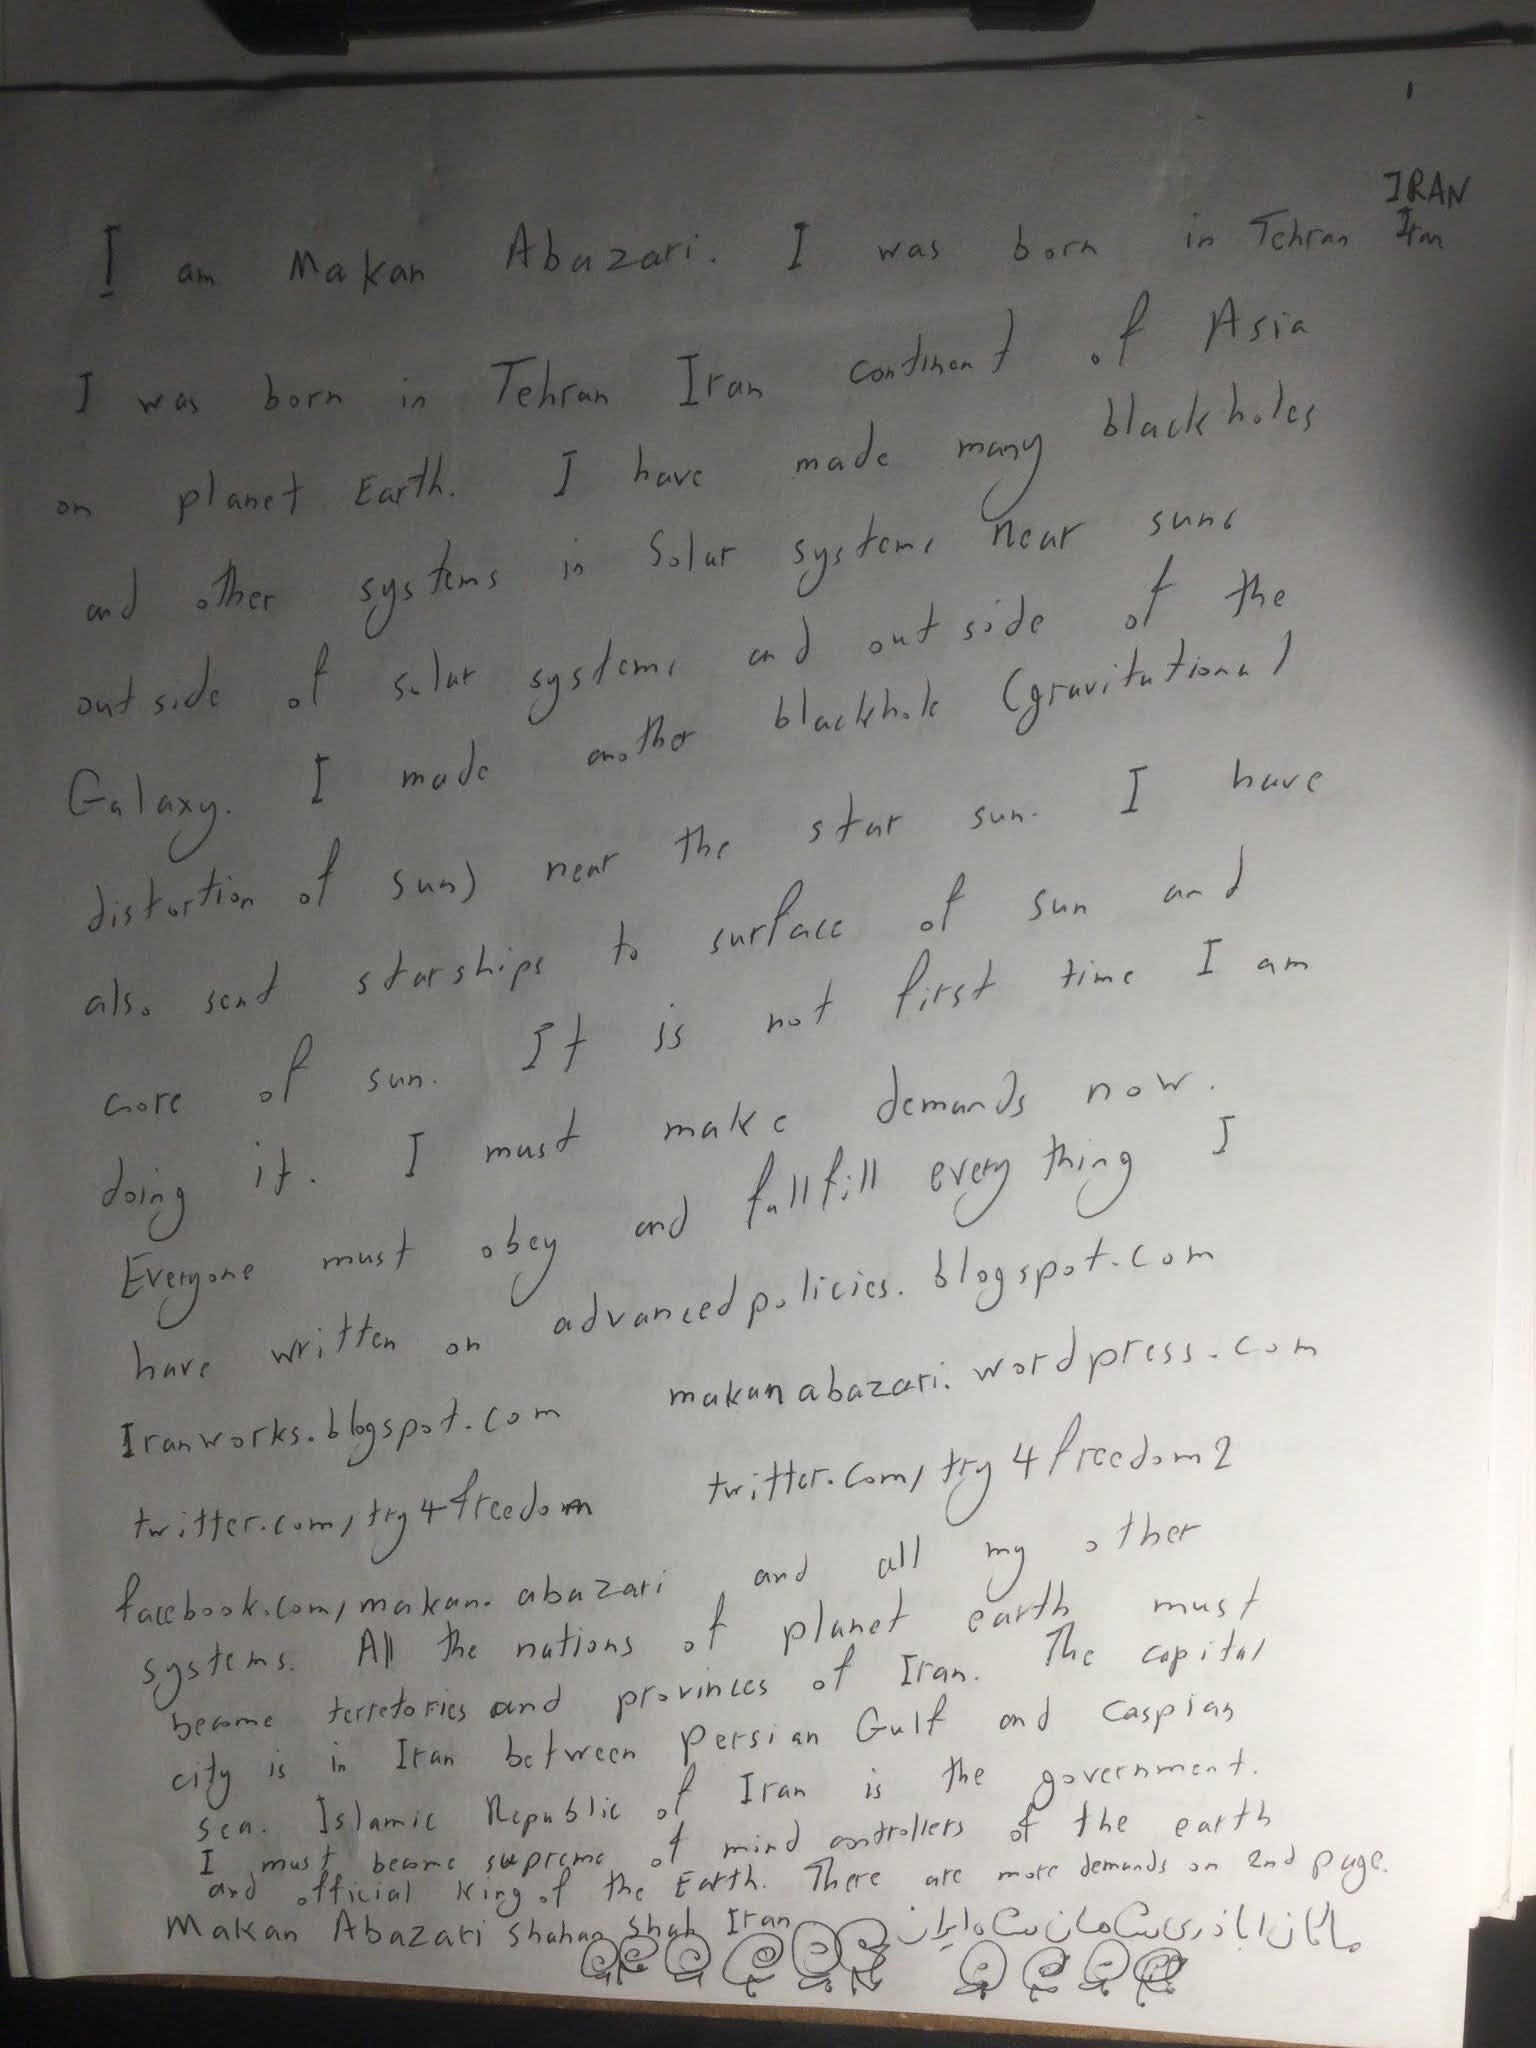 1
IRAN
I am Makan Abazari. I was born in Tehran Iran
I was born in Tehran Iran continent of Asia
on planet Earth. I have made many blackholes
and other systems in Solar systems near suns
outside of solar systems and outside of the
Galaxy. I made another blackhole (gravitational
distortion of sun) near the star sun. I have
also send starships to surface of sun and
core of sun. It is not first time I am
doing it. I must make demands now.
Everyone must obey and fullfill everything I
have written on advancedpolicies.blogspot.com
Iranworks.blogspot.com makanabazari.wordpress.com
twitter.com/try4freedom twitter.com/try4freedom2
facebook.com/makan.abazari and all my other
systems. All the nations of planet earth must
become terretories and provinces of Iran. The capital
city is in Iran between Persian Gulf and Caspian
sea. Islamic Republic of Iran is the government.
I must become supreme of mind controllers of the earth
and official King of the Earth. There are more demands on 2nd page.
Makan Abazari Shahan Shah Iran ماکان اباذری شاهان شاه ایران